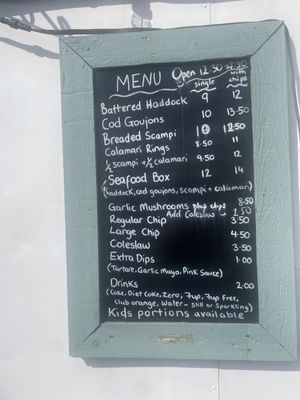 MENU Open 12.30
single with chips
Battered Haddock 9 12
Cod Goujons 10 13.50
Breaded Scampi 10 12.50
Calamari Rings 8.50 11
½ scampi + ½ calamari 9.50 12
Seafood Box 12 14
(haddock, cod goujons, scampi + calamari)
Garlic Mushrooms plus chips 8.50
Add Coleslaw + 1.50
Regular Chip 3.50
Large Chip 4.50
Coleslaw 3.50
Extra Dips 1.00
(Tartare, Garlic Mayo, Pink Sauce)
Drinks 2.00
(Coke, Diet Coke, Zero, 7up, 7up Free,
Club orange, Water - Still or Sparkling)
Kids portions available